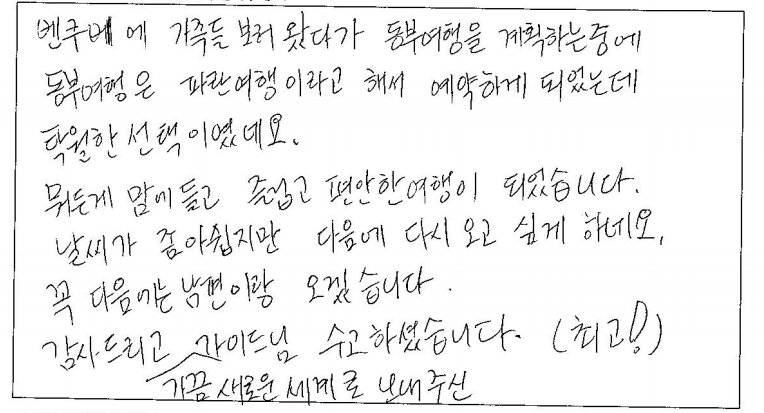 벤쿠베에 가족들 보러 왔다가 동부여행을 계획하는중에
동부여행은 파란여행이라고 해서 예약하게 되었는데
탁월한 선택이였네요.
뭐든게 맘에들고 즐겁고 편안한여행이 되었습니다.
날씨가 좀아쉽지만 다음에 다시 오고 싶게 하네요.
꼭 다음에는 남편이랑 오겠습니다.
감사드리고 가이드님 수고하셨습니다. (최고!)
가끔 새로운 세계로 보내주신